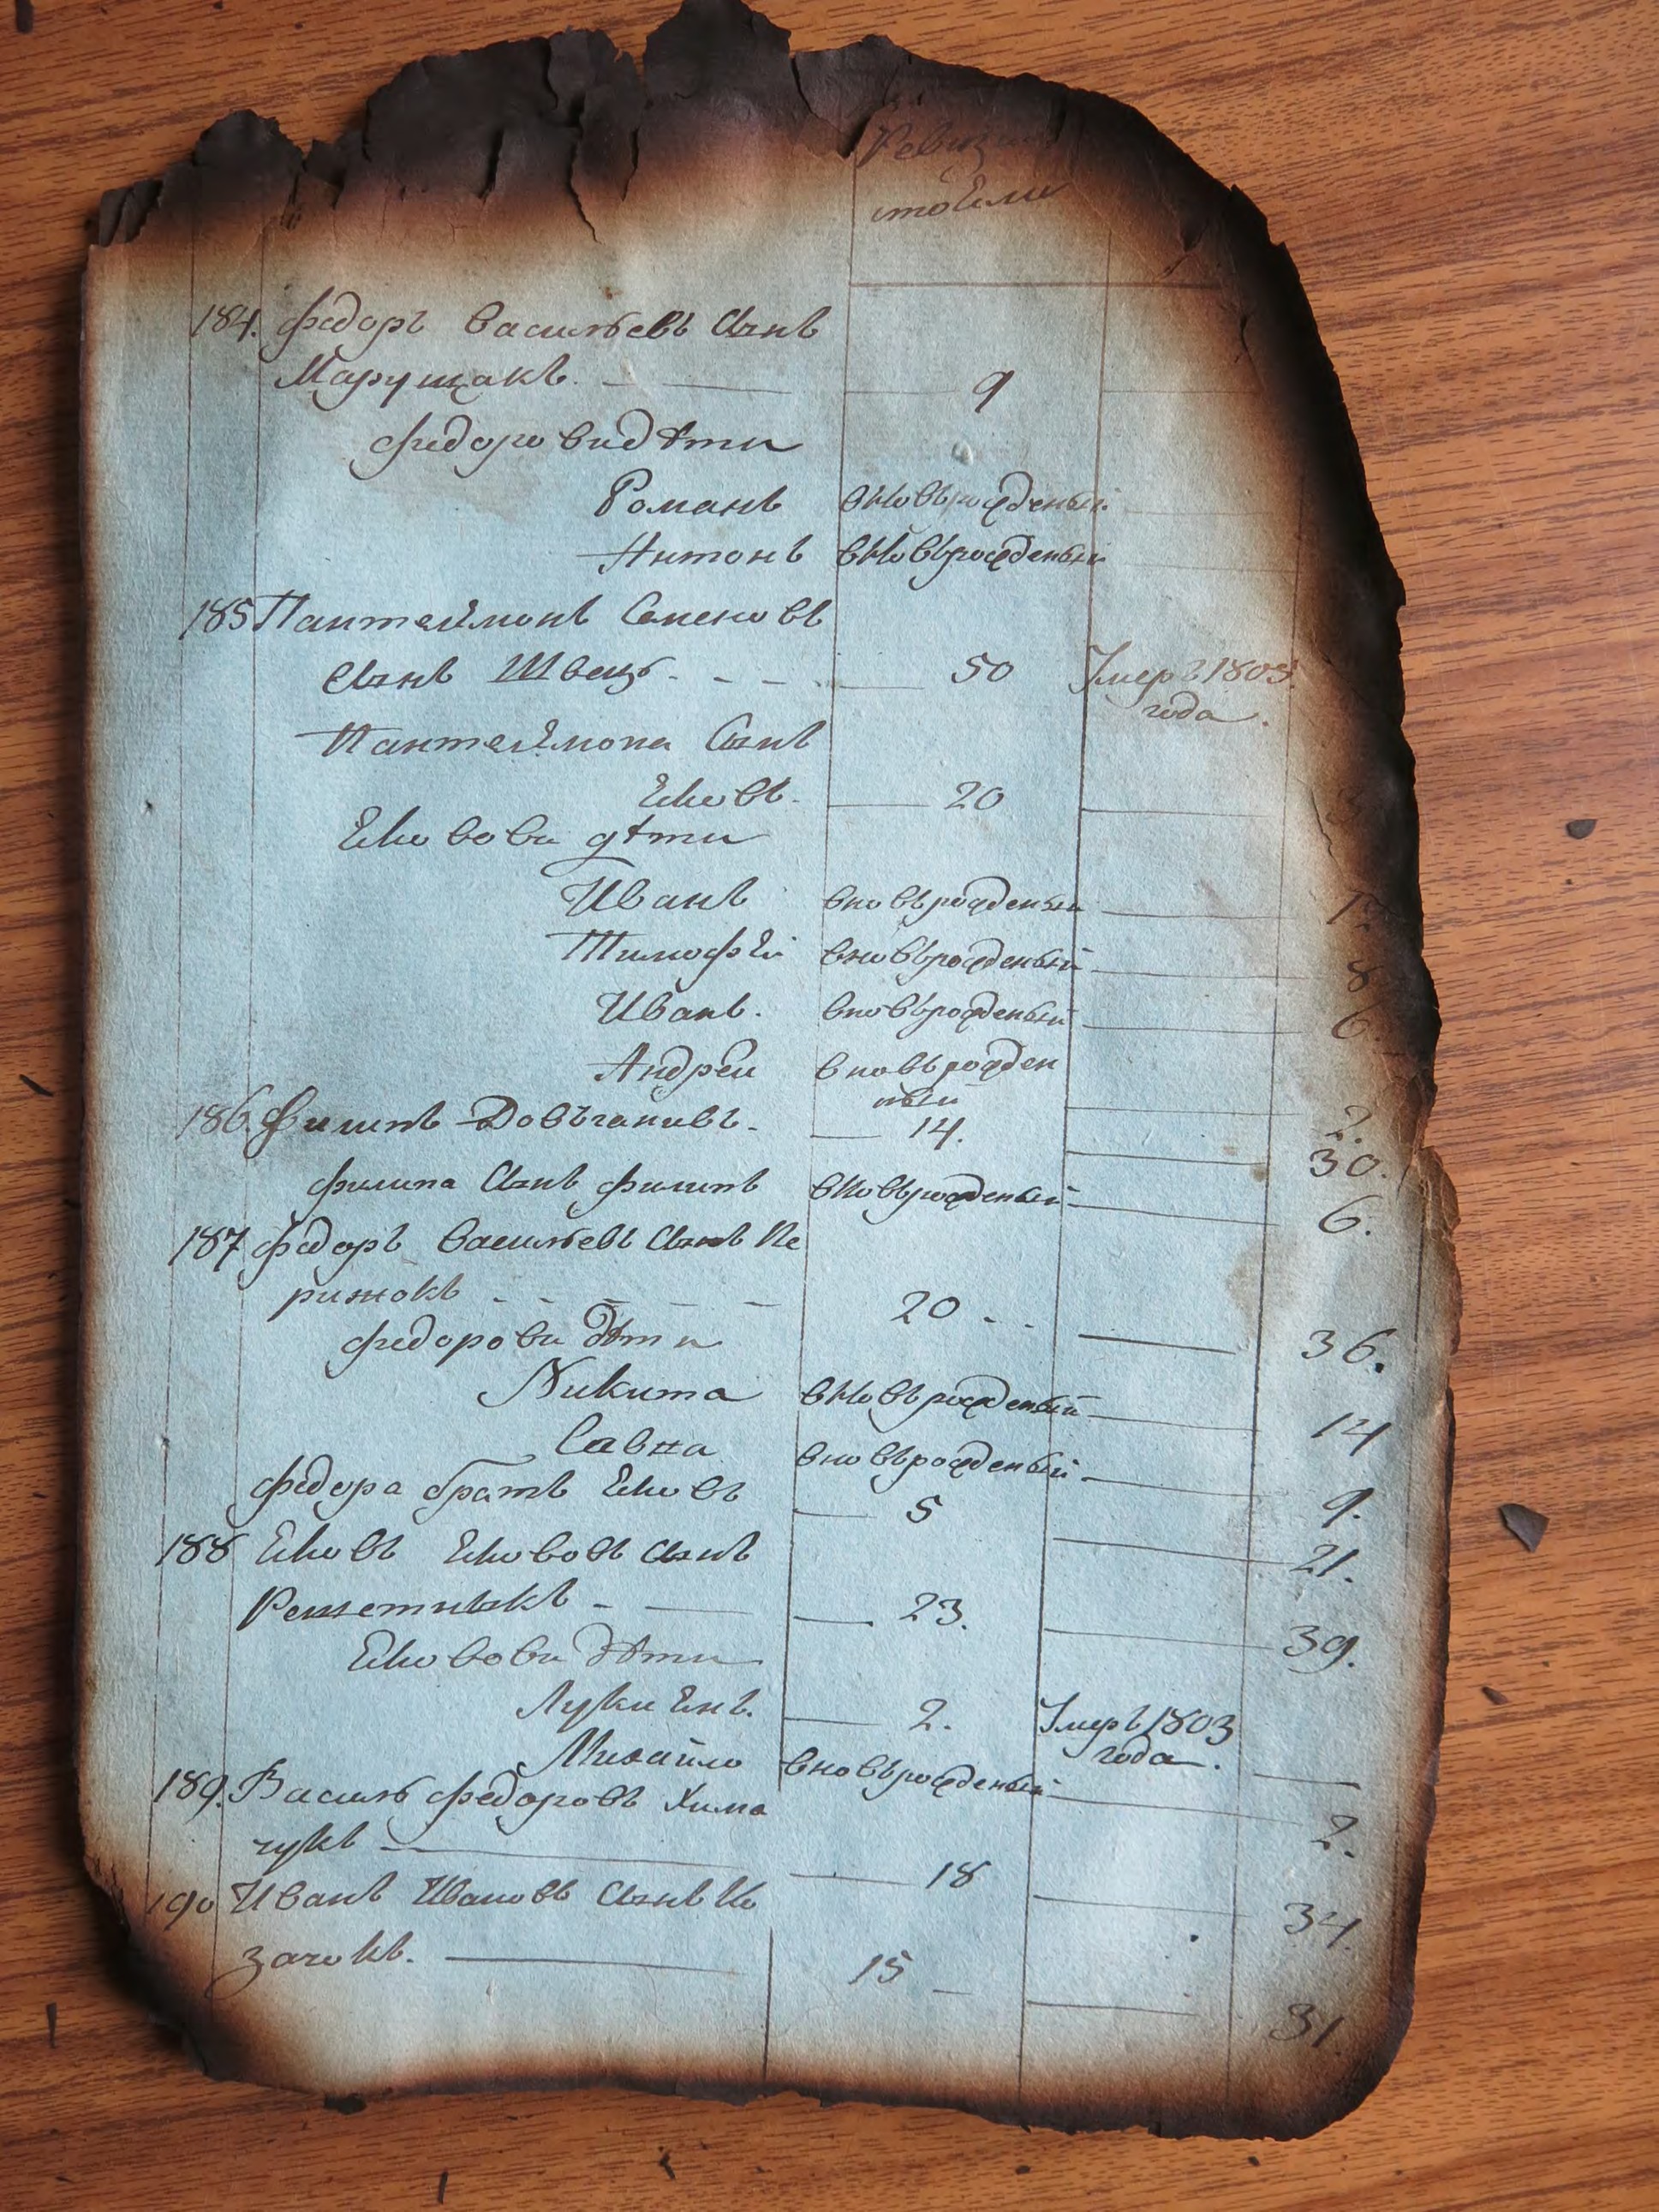 184. Федоръ Васильевъ Сынъ
Марущакъ. 9
Федорови дѣти
Романъ вновьрожденый
Антонъ вновьрожденый
185 Пантелимонъ Семеновъ
Сынъ Швецъ. 50 Умеръ 1803.
года.
Пантелимона Сынъ
Яковъ. 20
Якобови дѣти
Иванъ вновьрожденый
Тимофей вновьрожденый 8
Иванъ. вновьрожденый 6.
Андрей вновьрожден
ный 2.
186 Филипъ Довъганивъ. 14. 30.
Филипа Сынъ Филипъ вновьрожденый 6.
187 Федоръ Васильевъ Сынъ Пе
рижокъ 20 36.
Федорови дѣти
Никита вновьрожденый 14
Савка вновьрожденый 9.
Федора братъ Яковъ 5 21.
188 Яковъ Якововъ Сынъ
Решетныкъ 23. 39.
Якобови дѣти
Лукиянъ. 2. Умеръ 1803
года.
Михайло вновьрожденый 2.
189. Василь Федоровъ Хима
чукъ 18 34.
190 Иванъ Ивановъ Сынъ Ко
зачокъ. 15 31.